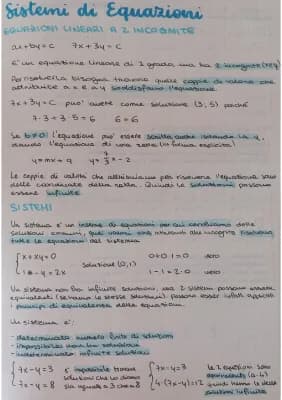 Sistemi di Equazioni
EQUAZIONI LINEARI A 2 INCOGNITE
ax+by=c 7x+3y=c
E' un'equazione lineare di 1 grado, ma ha 2 incognite (x e y)
Per risolverla bisogna trovare quelle coppie di valori che
attribuite a x e a y soddisfano l'equazione.
7x+3y=c può avere come soluzione (3; 5) perché
Se b≠0 l'equazione può essere scritta anche isolando la y,
dando l'equazione di una retta (in forma esplicita)
y=mx+q
Le coppie di valori che attribuiamo per risolvere l'equazione sono
delle coordinate della retta. Quindi le soluzioni possono
essere infinite
SISTEMI
Un sistema è un insieme di equazioni per cui cerchiamo delle
soluzioni comuni, quei valori che attribuiti alle incognite risolvono
tutte le equazioni del sistema
soluzione (0,1) 0+0·1=0 vero
1-1=2·0 vero
Un sistema non ha infinite soluzioni, ma 2 sistemi possono essere
equivalenti (se hanno le stesse soluzioni) possono essere infatti applicati
i principi di equivalenza delle equazioni.
Un sistema è:
- determinato numero finito di soluzioni
- impossibile non ha soluzioni
- indeterminato infinite soluzioni
7x-y=3 è impossibile trovare 7x-y=3 le 2 equazioni sono
7x-y=8 soluzioni che ci diano 4(7x-y)=12 equivalenti
sia uguale a 3 che a 8 quindi hanno
soluzioni infinite